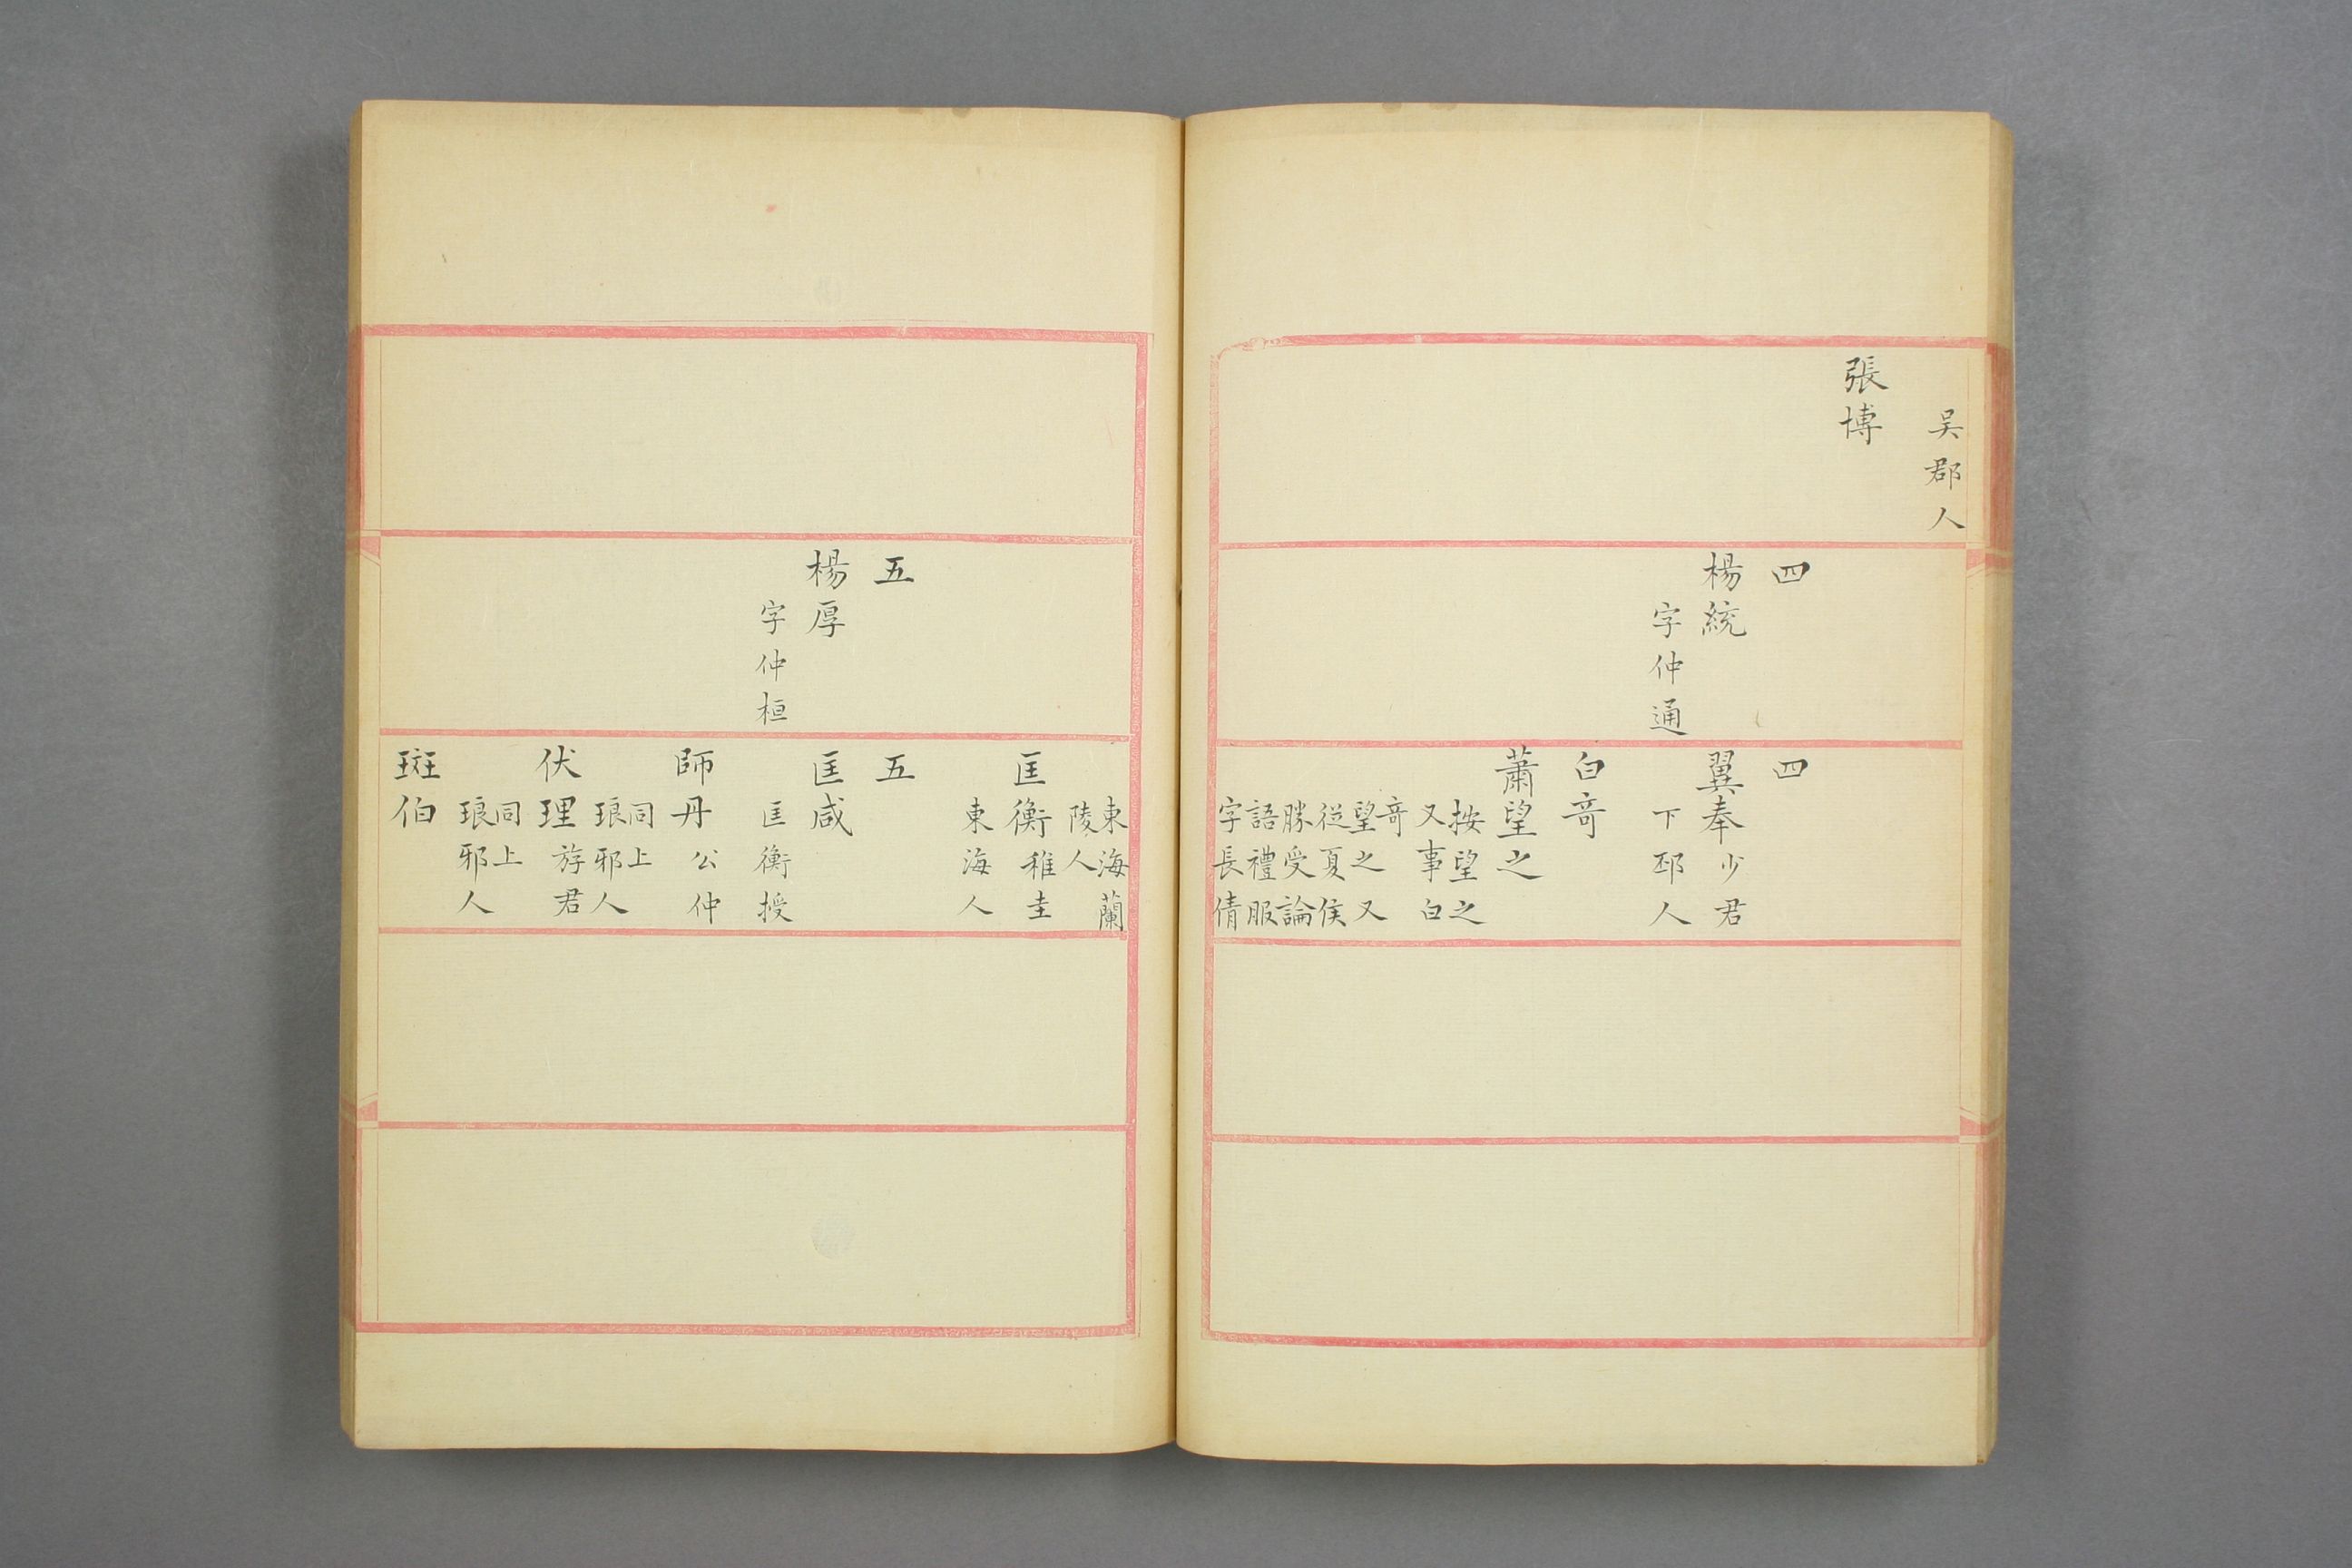 吴郡人
張博
四
楊統
字仲通
四
翼奉少君
下邳人
白竒
蕭望之
按望之
又事白
竒
望之又
從夏侯
勝受論
語禮服
字長倩
五
楊厚
字仲桓
東海蘭
陵人
匡衡稚圭
東海人
五
匡咸
匡衡授
師丹公仲
同上
琅邪人
伏理斿君
同上
琅邪人
斑伯